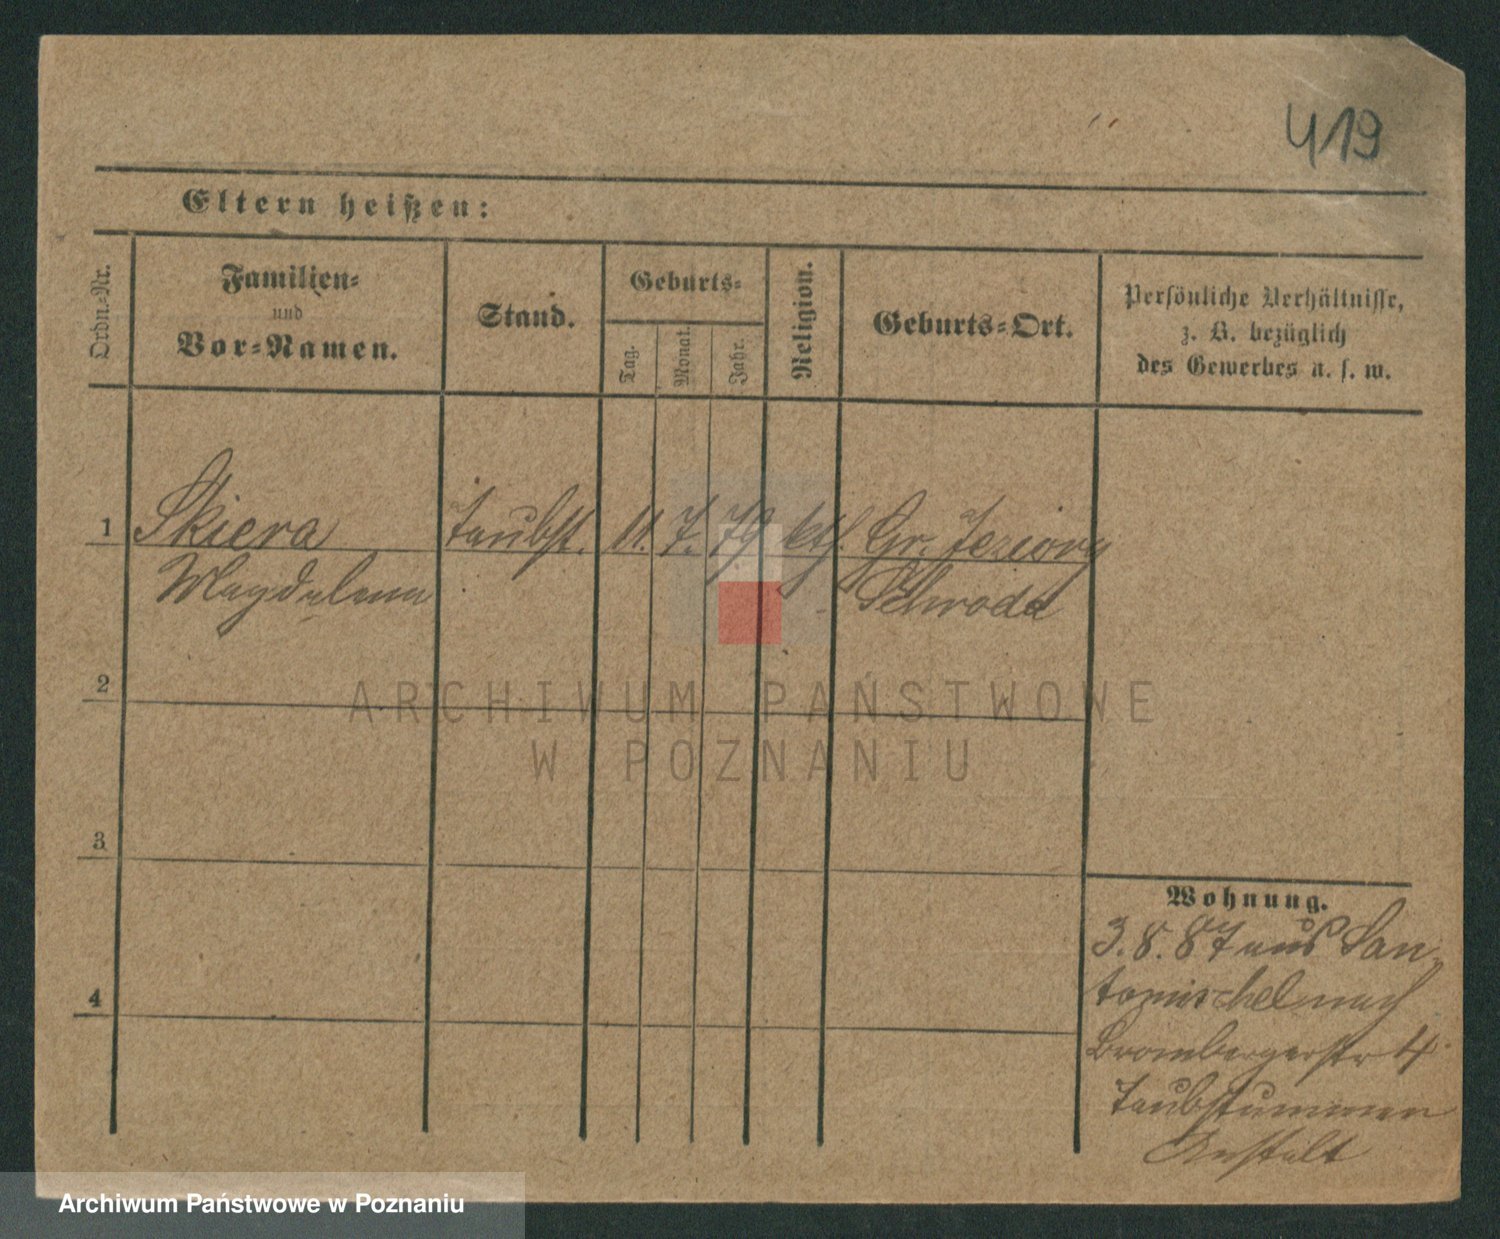 419
Eltern heißen:
Ordn.-Nr.
Familien-
und
Vor-Namen.
Stand.
Geburts-
Tag.
Monat.
Jahr.
Religion.
Geburts-Ort.
Persönliche Verhältnisse,
z. B. bezüglich
des Gewerbes u. s. w.
1 Skiera taubst. 11. 7. 79 kth. Gr. Jeziory
Magdalena Schroda
2
3
4
Wohnung.
3. 8. 87 aus San-
tomischel nach
Brombergerstr 4
Taubstummen
Anstalt
ARCHIWUM PAŃSTWOWE
W POZNANIU
Archiwum Państwowe w Poznaniu